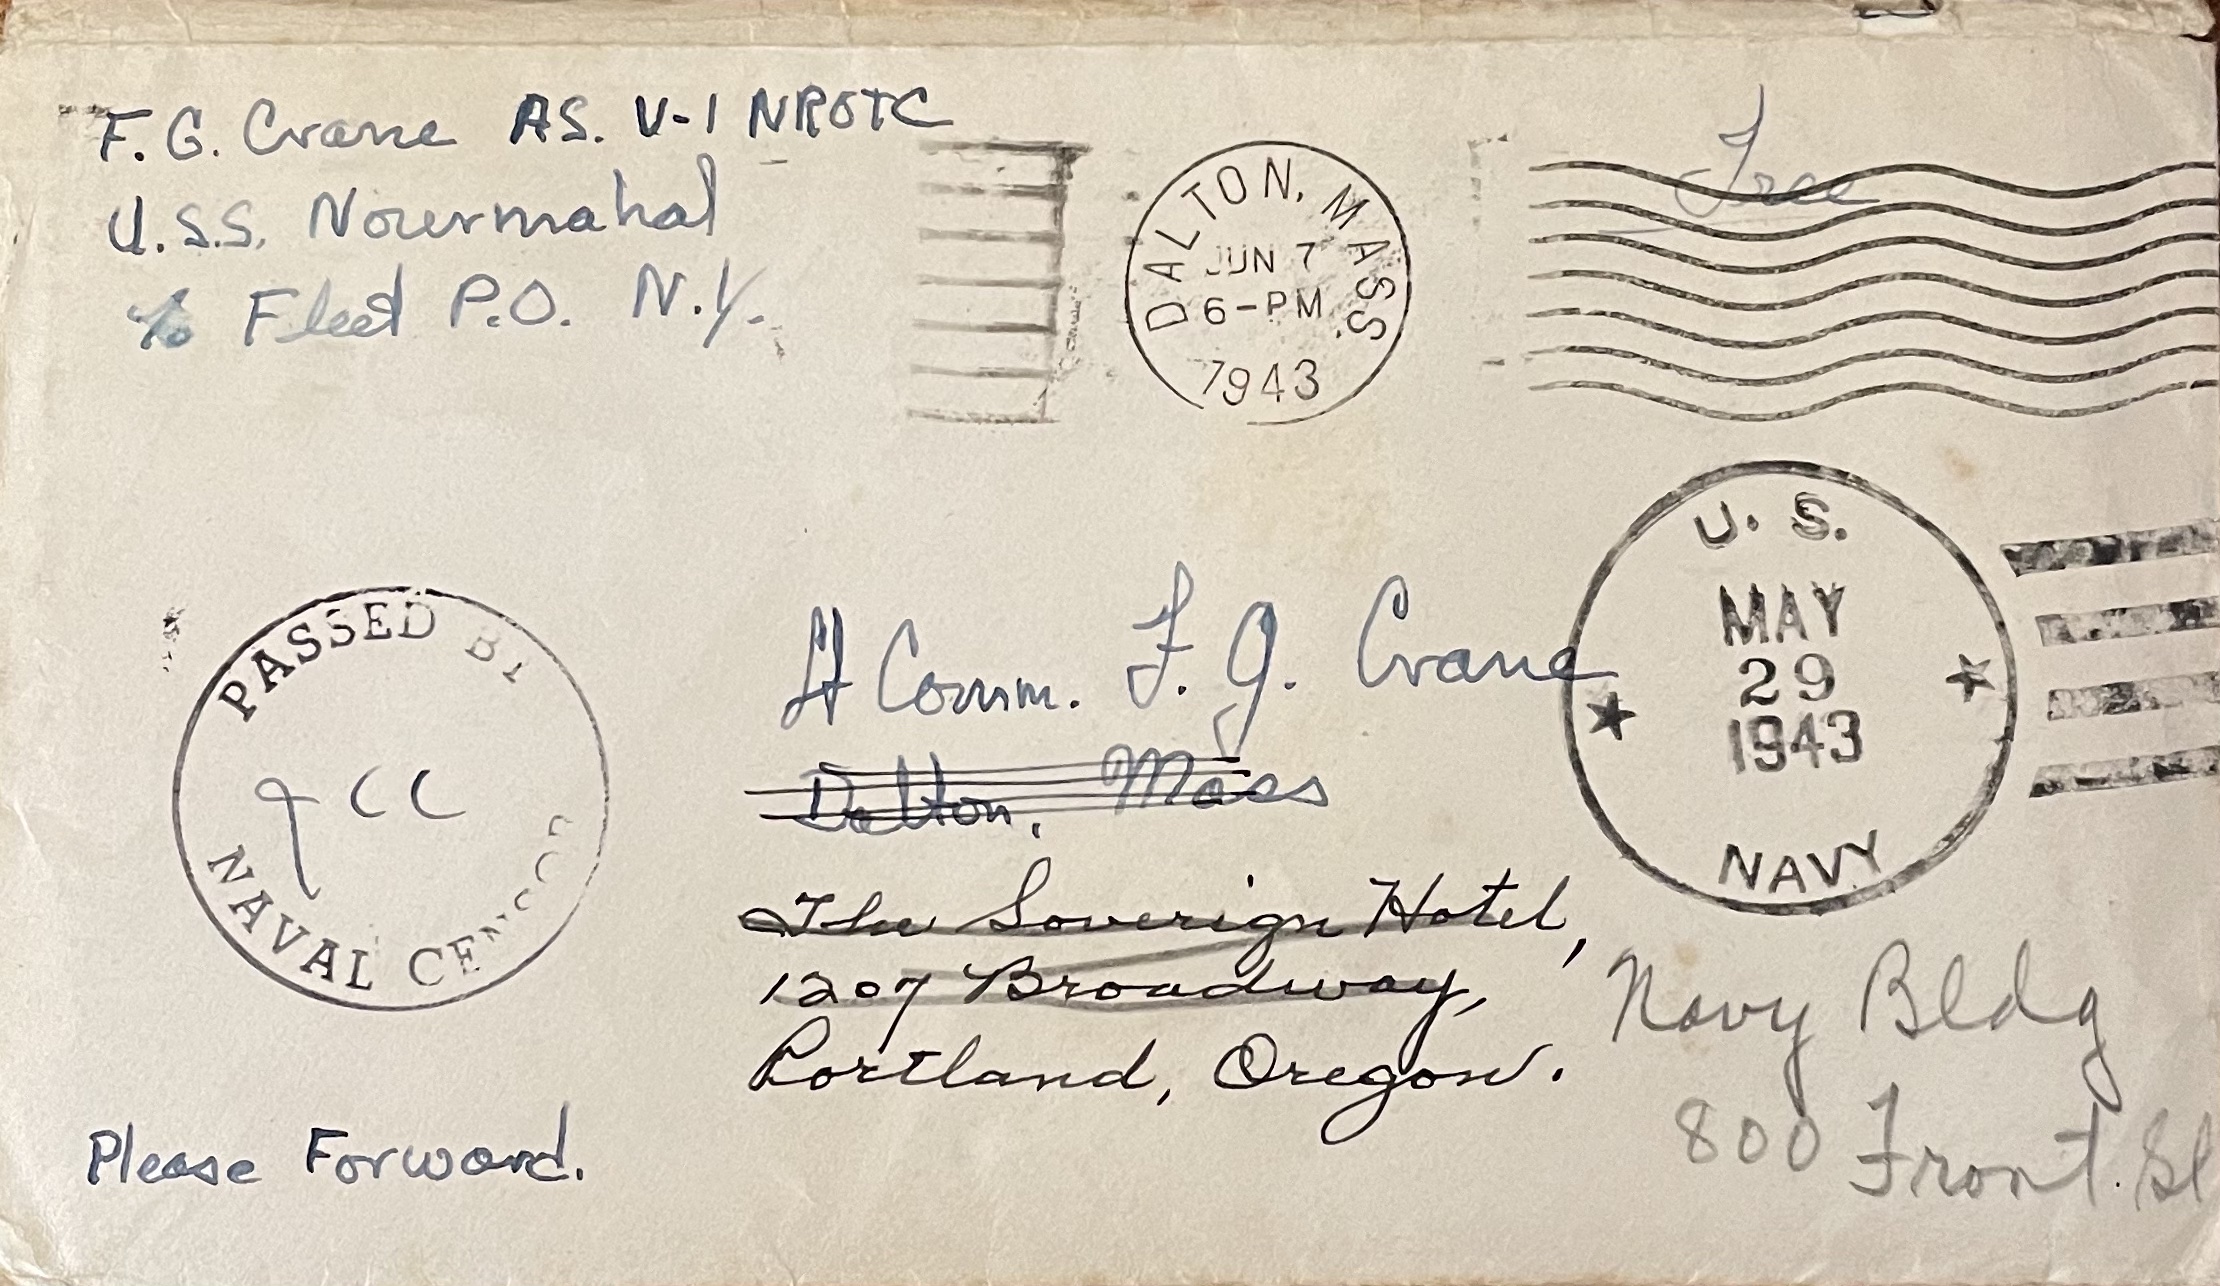 F. G. Crane AS. V-1 NROTC
U.S.S. Nourmahal
℅ Fleet P.O. N.Y.
DALTON, MASS.
JUN 7
6-PM
1943
Free
U. S.
MAY
29
1943
NAVY
PASSED BY
NAVAL CENSOR
Lt Comm. F. G. Crane
Dalton, Mass
The Soverign Hotel,
1207 Broadway,
Portland, Oregon.
Navy Bldg
800 Front St
Please Forward.